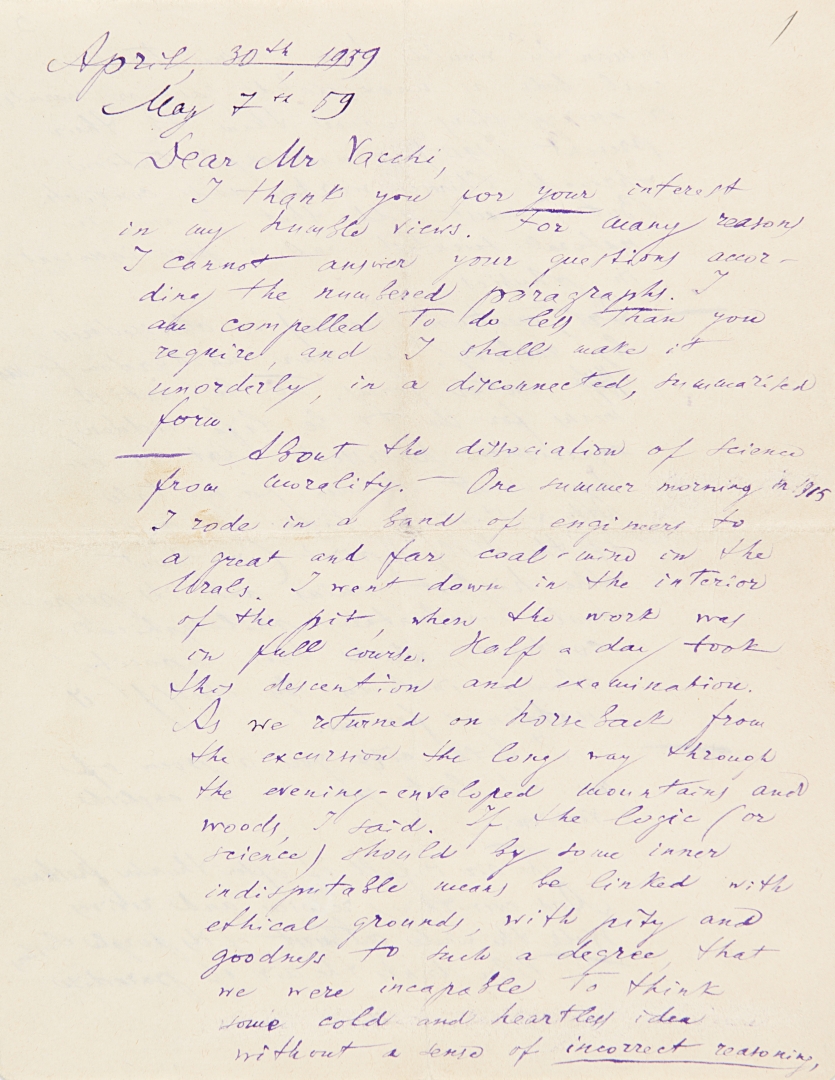 1
April, 30th, 1959
May 7th 59
Dear Mr Vacchi,
I thank you for your interest
in my humble views. For many reasons
I cannot answer your questions accor-
ding the numbered paragraphs. I
am compelled to do less than you
require, and I shall make it
unorderly, in a disconnected, summarised
form.
About the dissociation of science
from morality. – One summer morning in 1915
I rode in a band of engineers to
a great and far coal-mine in the
Urals. I went down in the interior
of the pit, when the work was
in full course. Half a day took
this descention and examination.
As we returned on horseback from
the excursion the long way through
the evening-enveloped mountains and
woods, I said. If the logic (or
science) should by some inner
indisputable means be linked with
ethical grounds, with pity and
goodness to such a degree that
we were incapable to think
some cold and heartless idea
without a sense of incorrect reasoning,